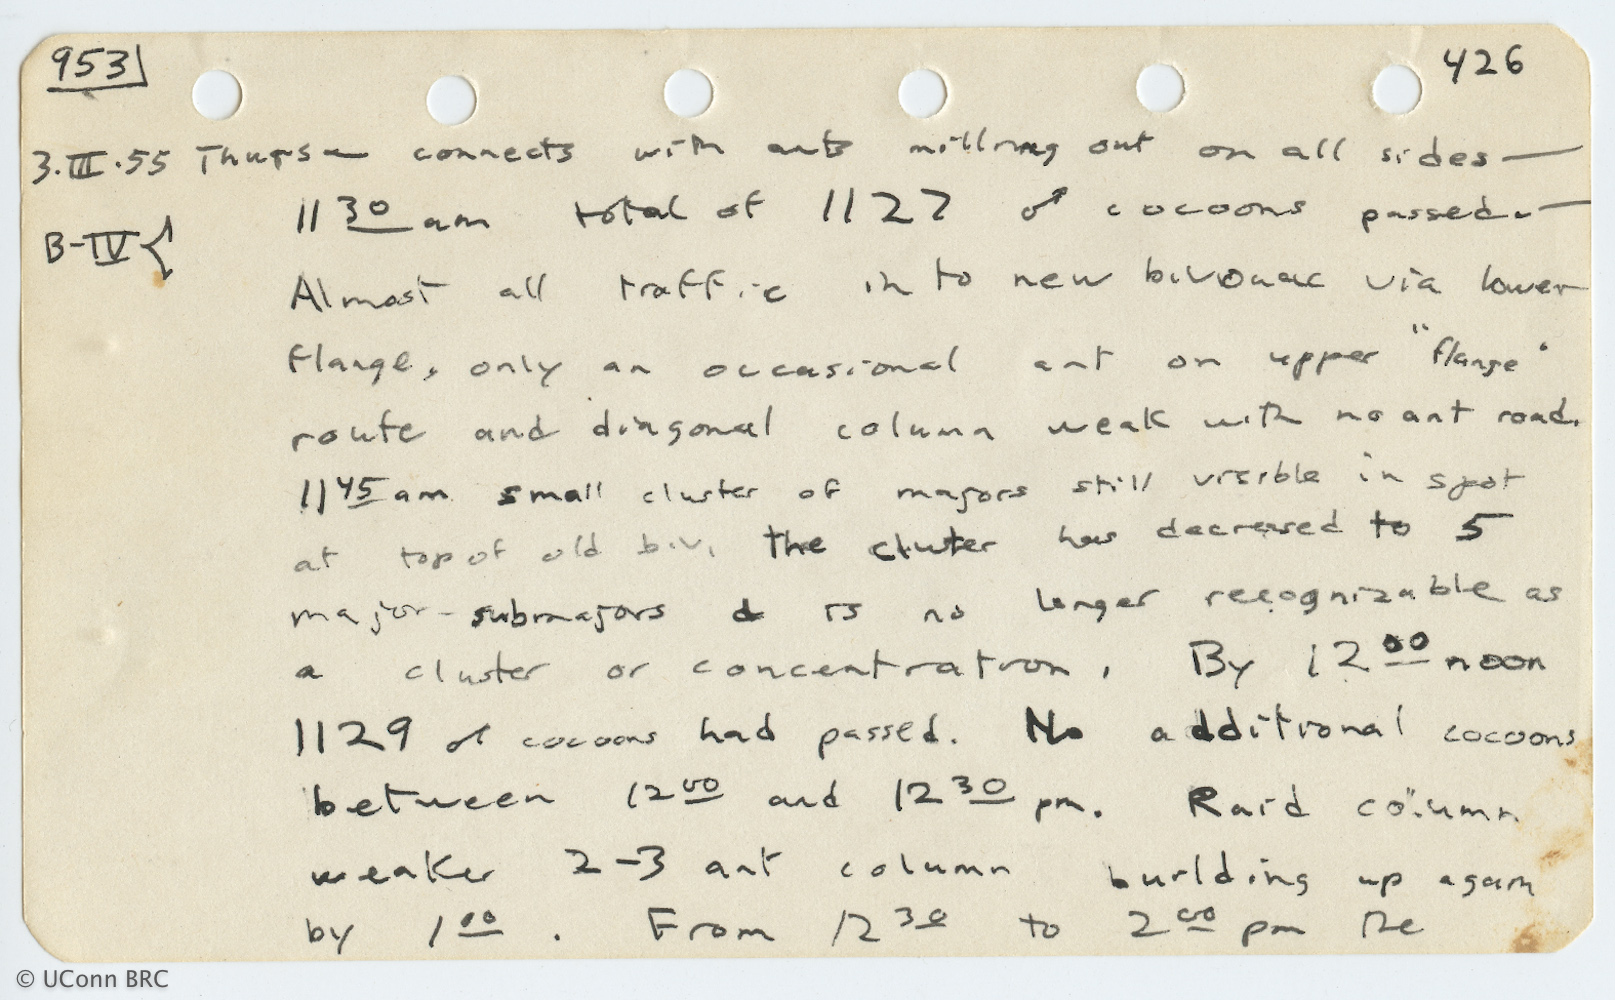 953 426
3.III.55 Thurs— connects with ants milling out on all sides—
B-IV 11 30 am total of 1127 ♂ cocoons passed.—
Almost all traffic in to new bivouac via lower
flange, only an occasional ant on upper "flange"
route and diagonal column weak with no ant road.
11 45 am small cluster of majors still visible in spot
at top of old biv. The cluster has decreased to 5
major-submajors & is no longer recognizable as
a cluster or concentration. By 12 00 noon
1129 ♂ cocoons had passed. No additional cocoons
between 12 00 and 12 30 pm. Raid column
weaker 2-3 ant column building up again
by 1 00. From 12 30 to 2 00 pm the
© UConn BRC